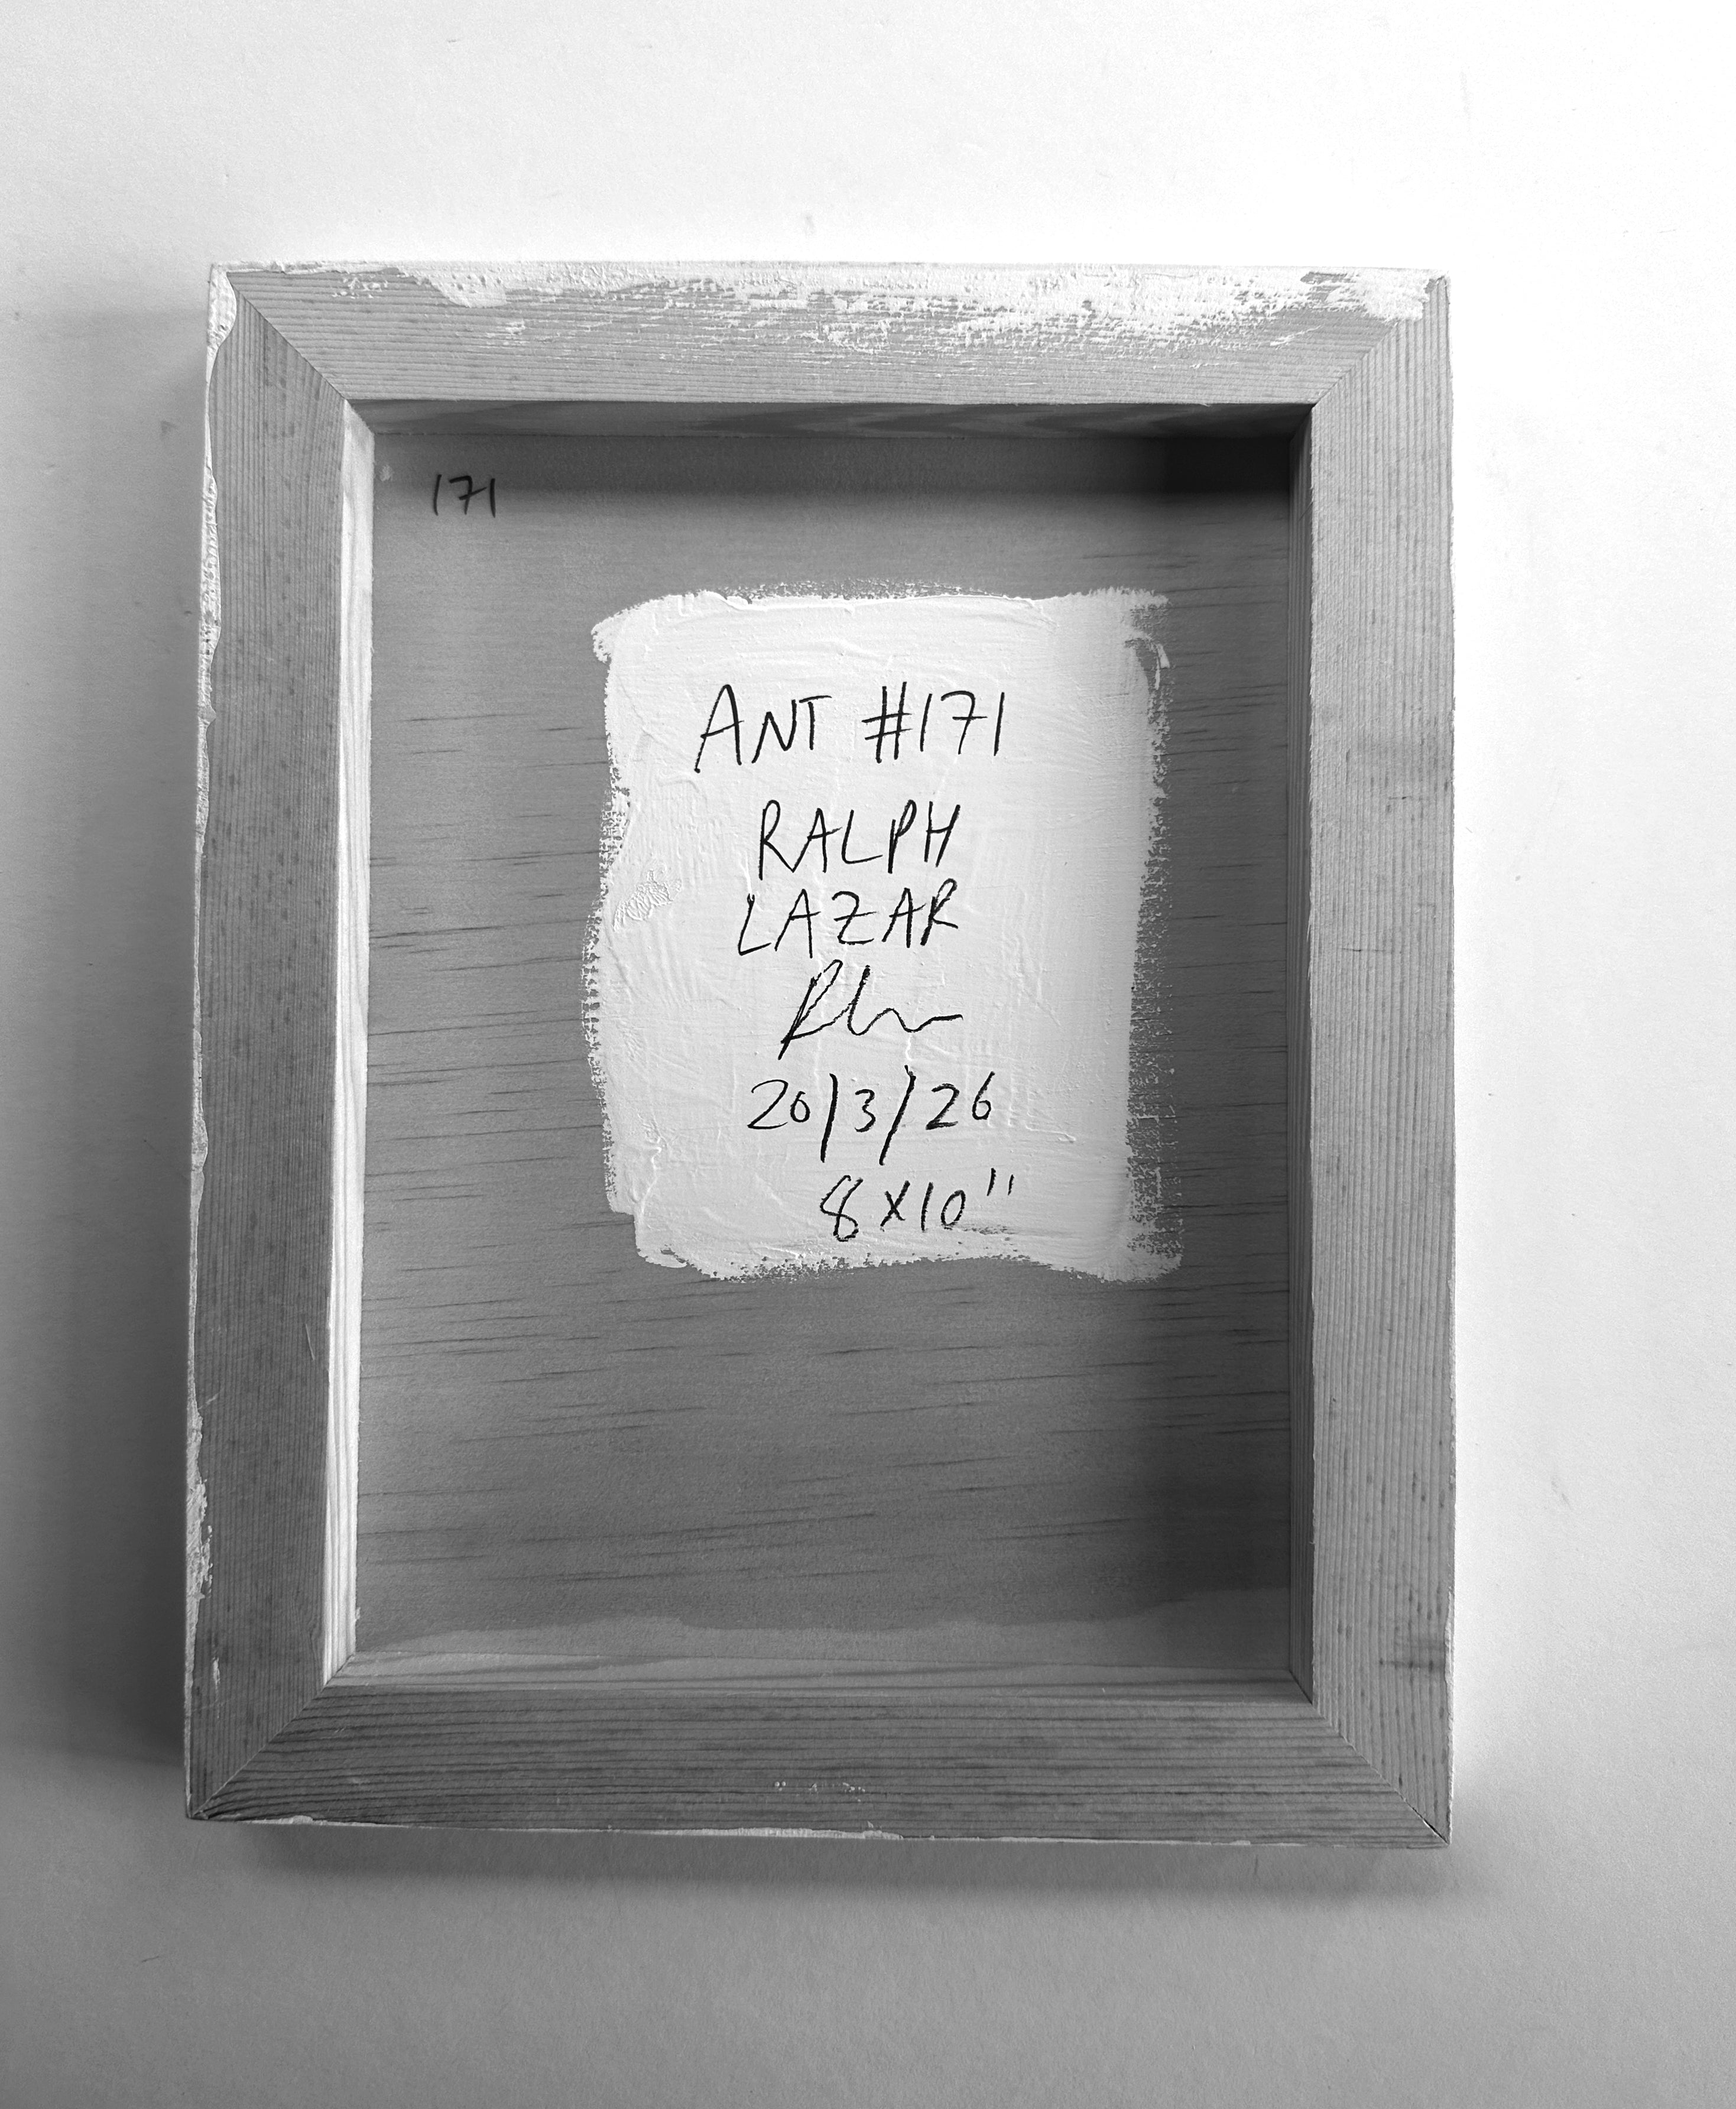 171
ANT #171
RALPH
LAZAR
20/3/26
8X10"